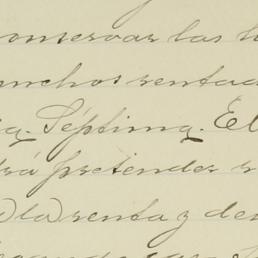 onservar las
nchos rentad
a. Séptima. El
rá pretender
la renta y de